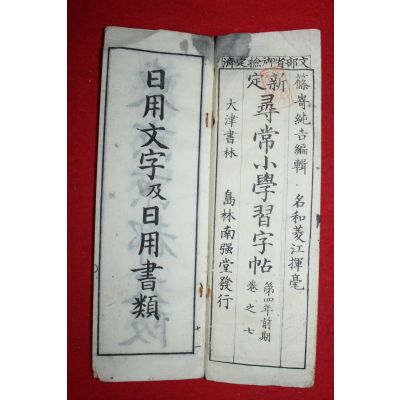 文部省御檢定濟
篠嵜純吉編輯 名和菱江揮毫
新定 尋常小學習字帖 第四年前期 卷之七
大津書林 島林南强堂發行
日用文字及日用書類